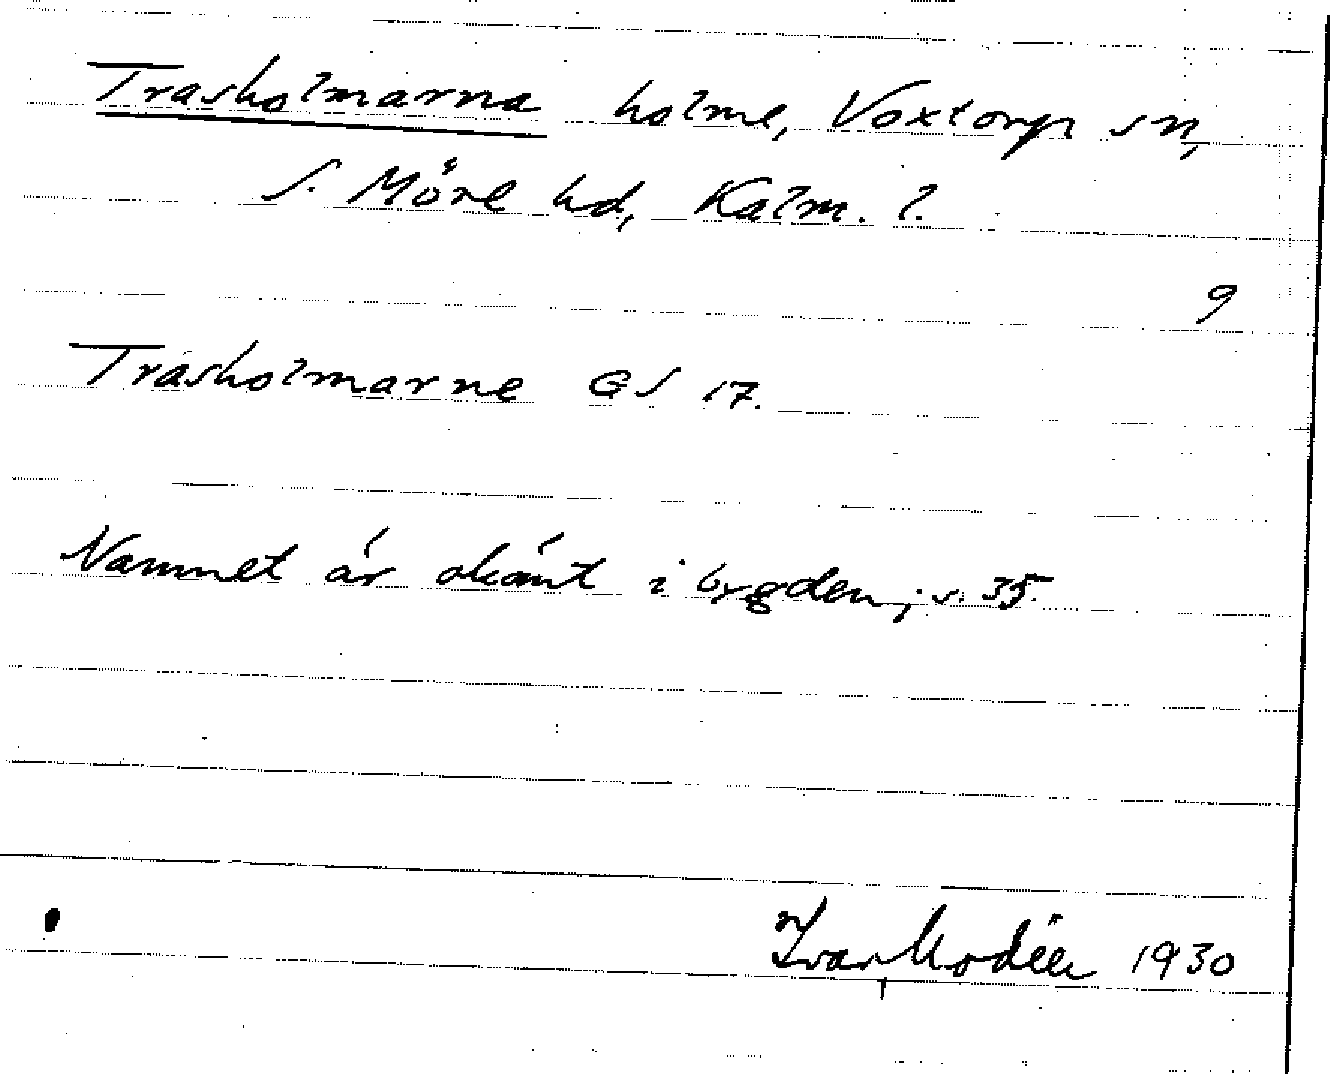 Trasholmarna holme, Voxtorp sn,
S. Möre hd, Kalm. l.
9
Trasholmarne GS 17.
Namnet är okänt i bygden, s. 35.
Ivar Modéer 1930